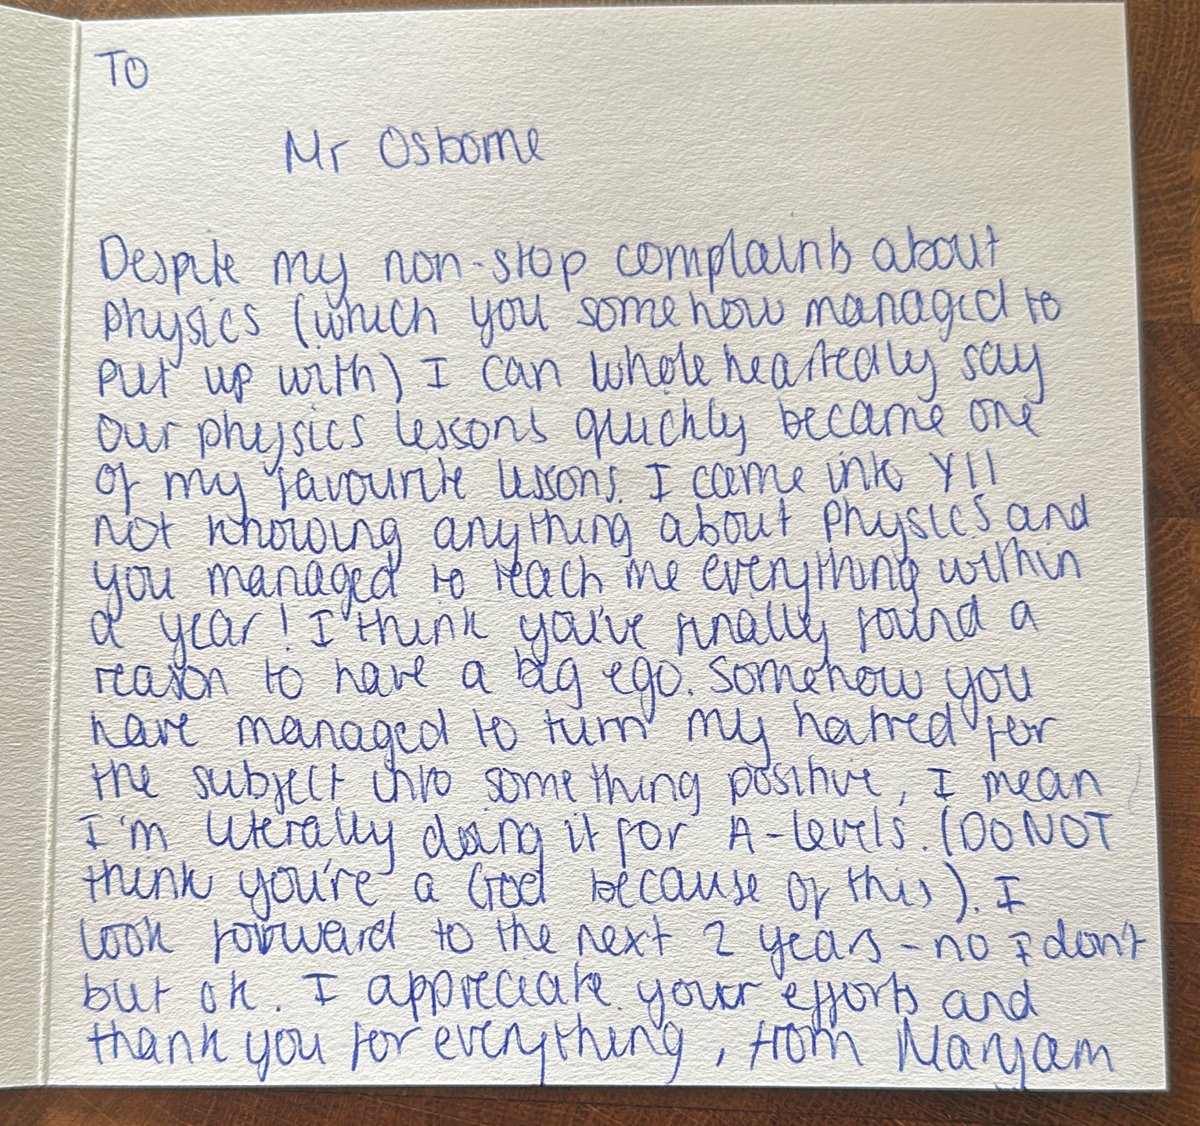 TO
Mr Osborne
Despite my non-stop complaints about
physics (which you somehow managed to
put up with) I can whole heartedly say
our physics lessons quickly became one
of my favourite lessons. I came into Y11
not knowing anything about physics and
you managed to teach me everything within
a year! I think you've finally found a
reason to have a big ego. Somehow you
have managed to turn my hatred for
the subject into something positive, I mean
I'm literally doing it for A-levels. (DO NOT
think you're a God because of this). I
look forward to the next 2 years - no I don't
but ok. I appreciate your efforts and
thank you for everything, from Maryam